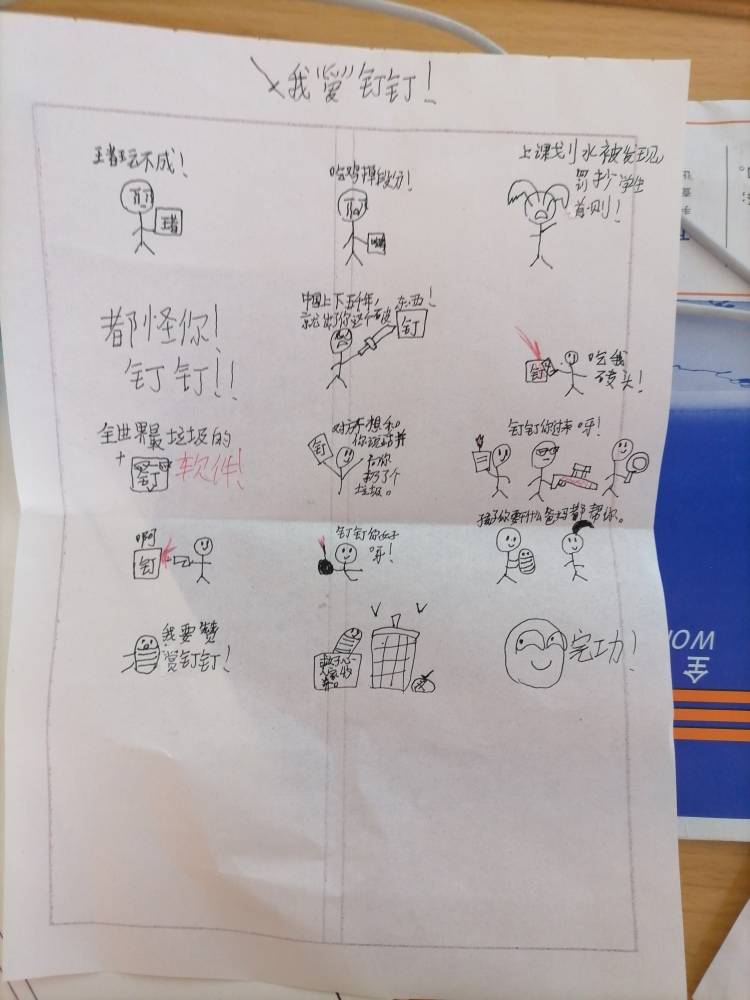 我“爱”钉钉！
王者玩不成！
王者
吃鸡掉段分！
上课划水被发现
罚抄学生
首则！
都怪你！
钉钉！！
中国上下五千年，
就出了你这个破
东西！
钉
钉
吃我
砖头！
全世界最垃圾的
钉
软件！
钉
对方不想和
你说话并
向你
扔了个
垃圾。
钉钉你过来呀！
啊
钉
钉钉你反了
呀！
孩子你要什么爸妈都帮你。
我要赞
赏钉钉！
完功！
全
WO